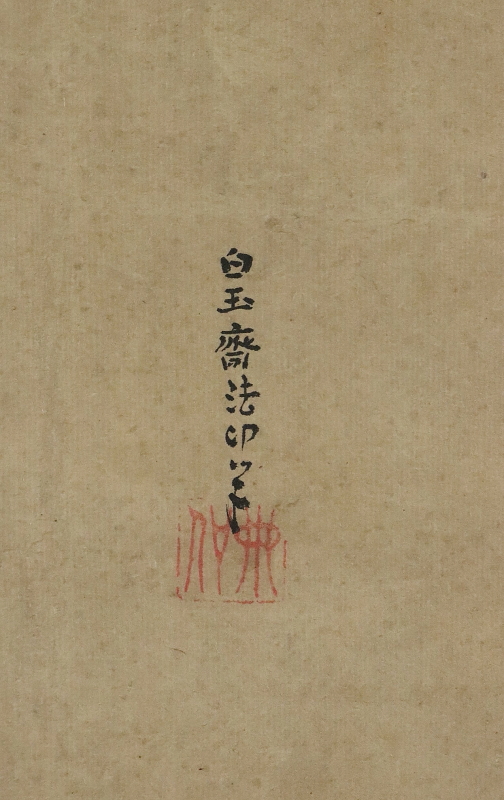 白玉齋法印筆